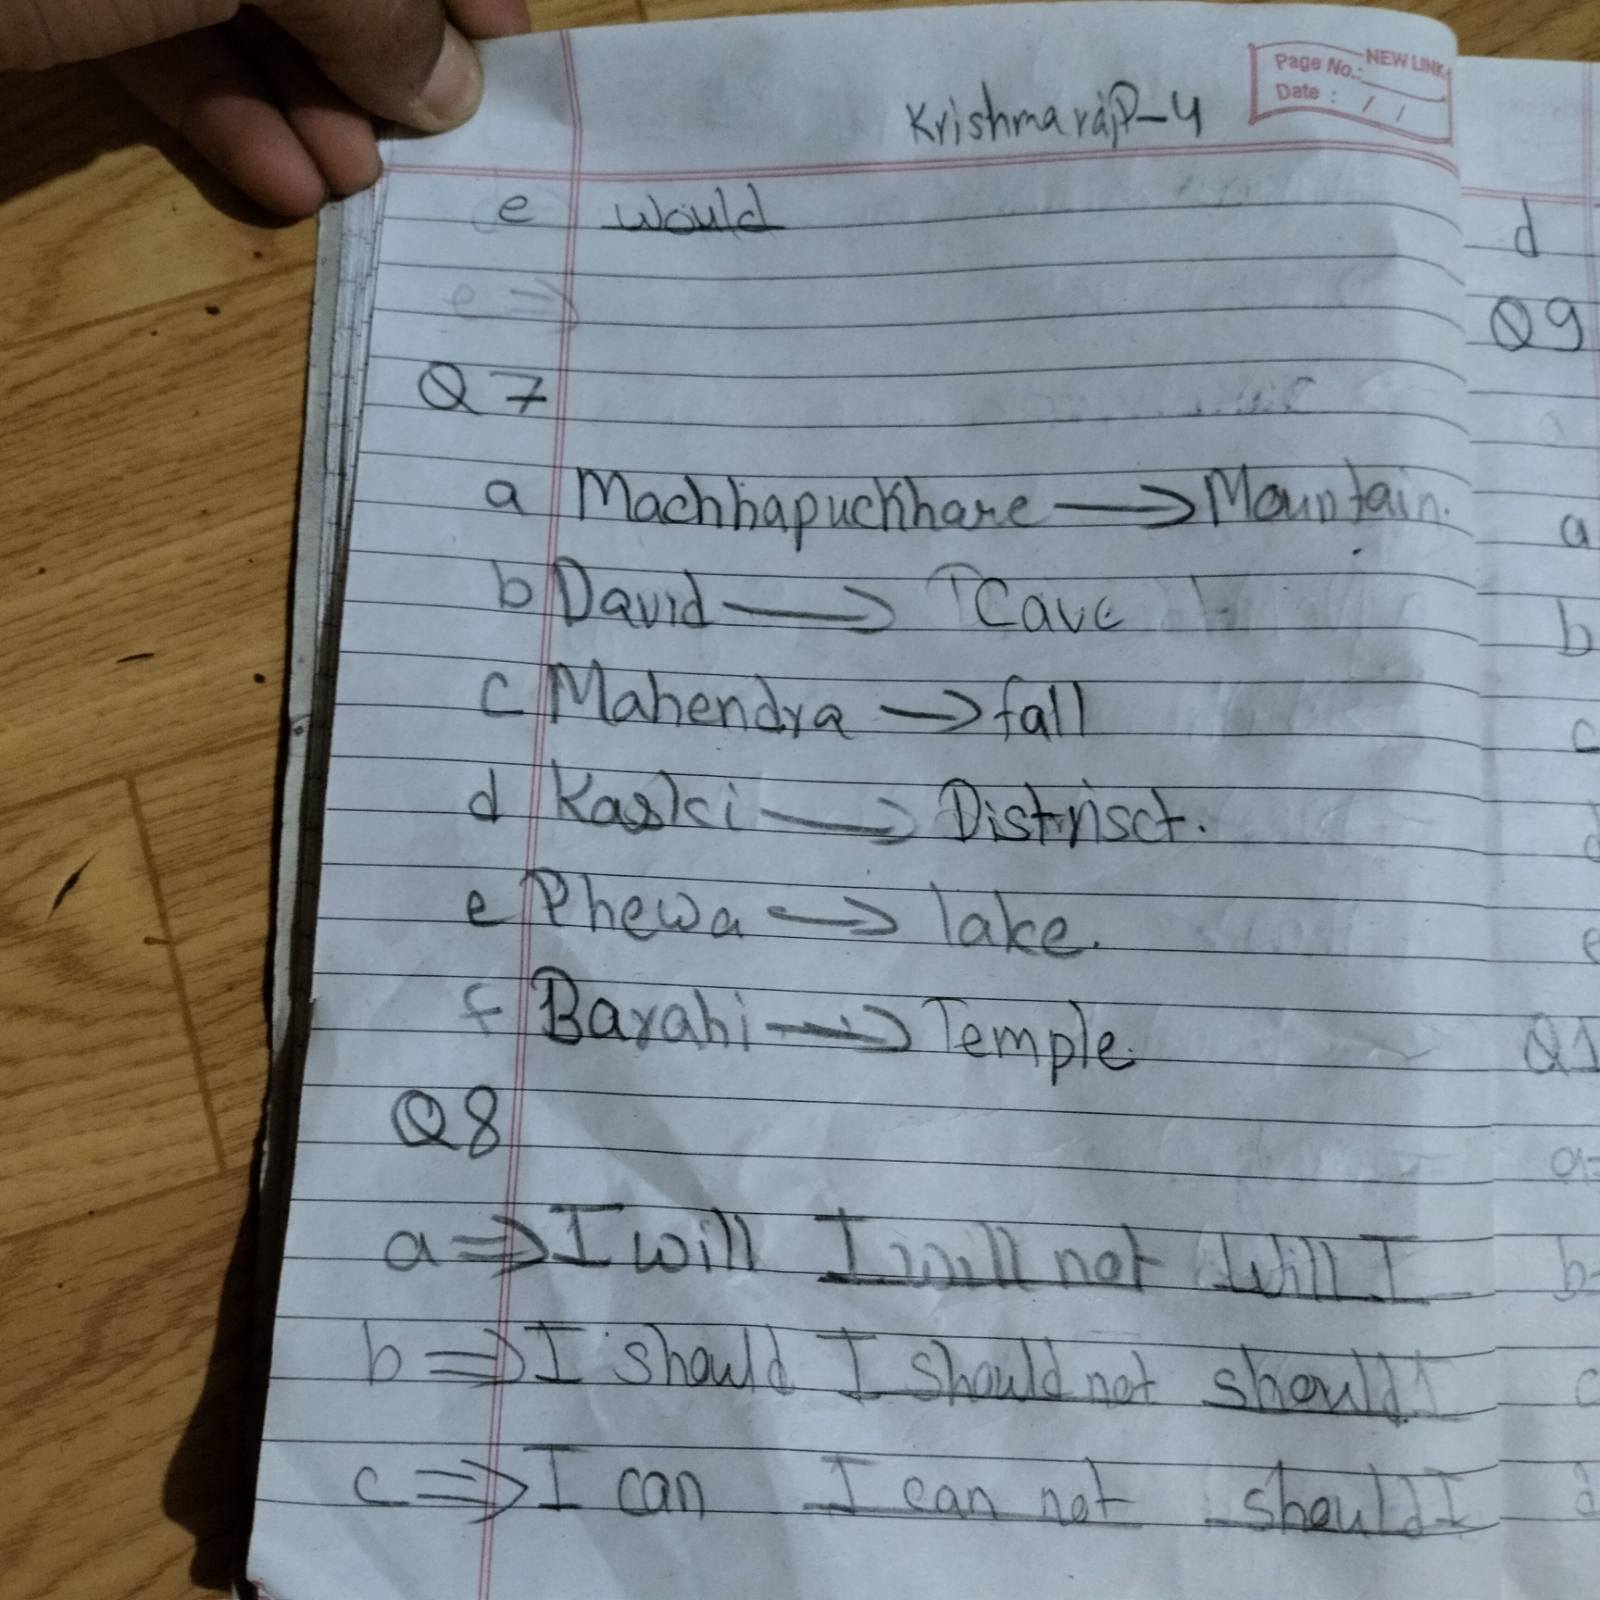 Page No.: NEW LINK
Date : / /
Krishmaraj P-4
e would
e ⇒
Q 7
a Machhapuckhare → Mountain.
b David → Cave
c Mahendra → fall
d Kaski → Distrisct.
e Phewa → lake.
f Barahi → Temple.
Q8
a ⇒ I will I will not will I
b ⇒ I should I should not should I
c ⇒ I can I can not should I
d
Q9
a
b
c
d
e
Q1
a=
b=
c
d